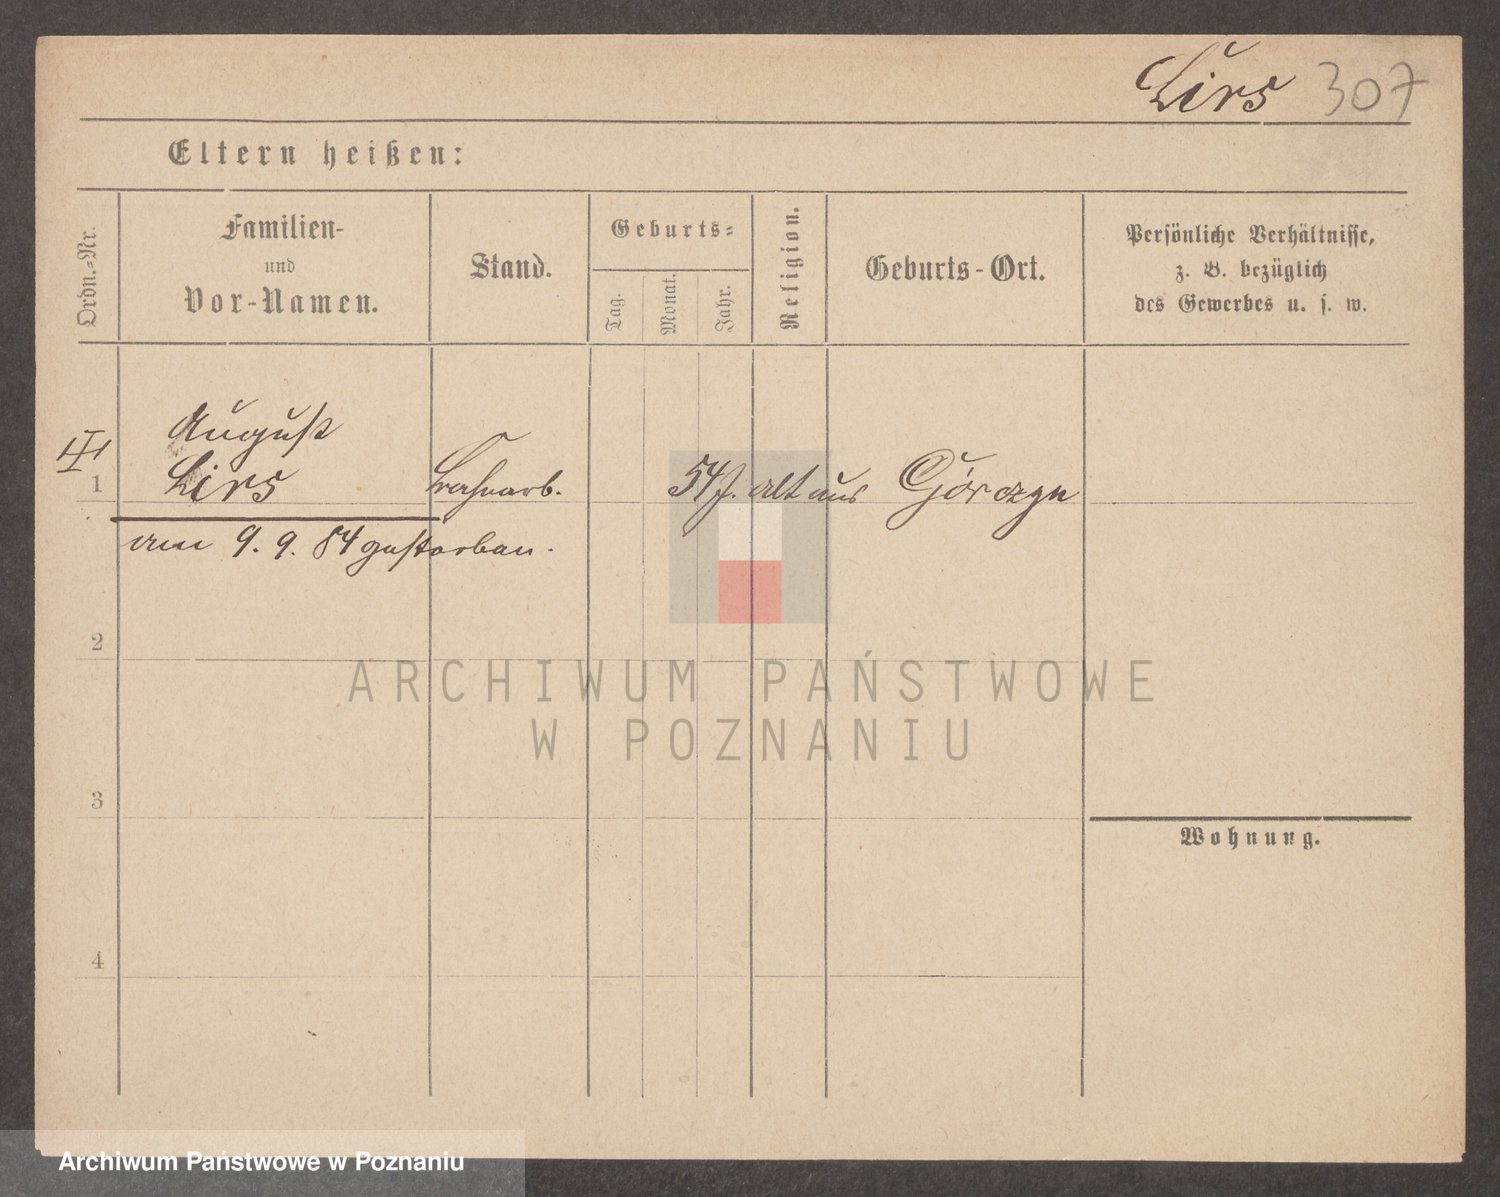 Lirs 307
Eltern heißen:
Ordn.-Nr.
Familien-
und
Vor-Namen.
Stand.
Geburts-
Tag.
Monat.
Jahr.
Religion.
Geburts-Ort.
Persönliche Verhältnisse,
z. B. bezüglich
des Gewerbes u. s. w.
August
1 Lirs 54 J. alt aus Górczyn
am 9. 9. 84 gestorben.
2
3
4
Wohnung.
ARCHIWUM PAŃSTWOWE
W POZNANIU
Archiwum Państwowe w Poznaniu